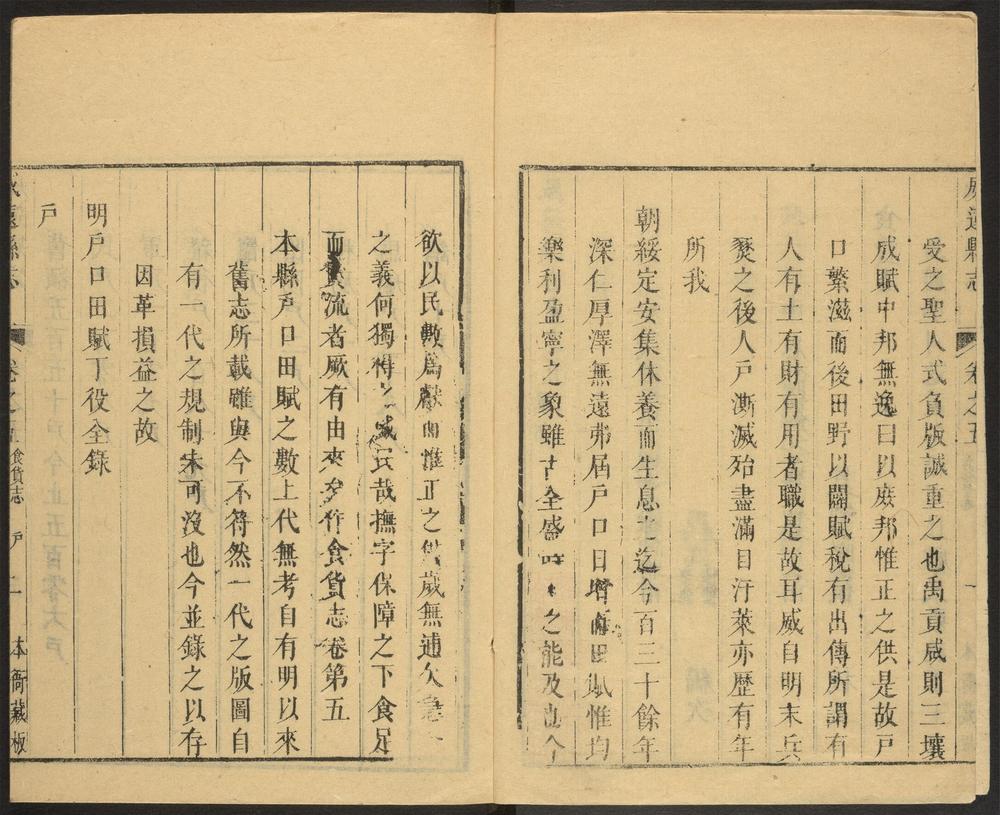 威遠縣志
卷之五
一
受之聖人式負版誠重之也禹貢咸則三壤
成賦中邦無逸曰以庶邦惟正之供是故戸
口繁滋而後田野以闢賦稅有出傳所謂有
人有土有財有用者職是故耳威自明末兵
燹之後人戸澌滅殆盡滿目汙萊亦歷有年
所我
朝綏定安集休養而生息之迄今百三十餘年
深仁厚澤無遠弗屆戸口日增田賦惟均
樂利盈寧之象雖 全盛時 之能及也今
欲以民數爲獻 惟正之供歲無逋欠
之義何獨得 民哉撫字保障之下食足
而貨流者厥有由來矣作食貨志卷第五
本縣戸口田賦之數上代無考自有明以來
舊志所載雖與今不符然一代之版圖自
有一代之規制未可沒也今並錄之以存
因革損益之故
明戸口田賦丁役全錄
戸
威遠縣志
卷之五
食貨志
戸
二
本衙藏板